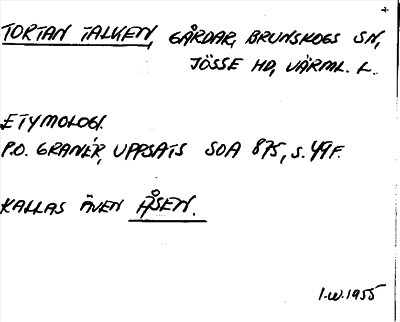 TORTAN TALKEN, GÅRDAR, BRUNSKOGS SN,
JÖSSE HD, VÄRML. L.
ETYMOLOGI.
P.O. GRANÉR, UPPSATS SOA 875, S. 49 F.
KALLAS ÄVEN ÅSEN.
I.W. 1955